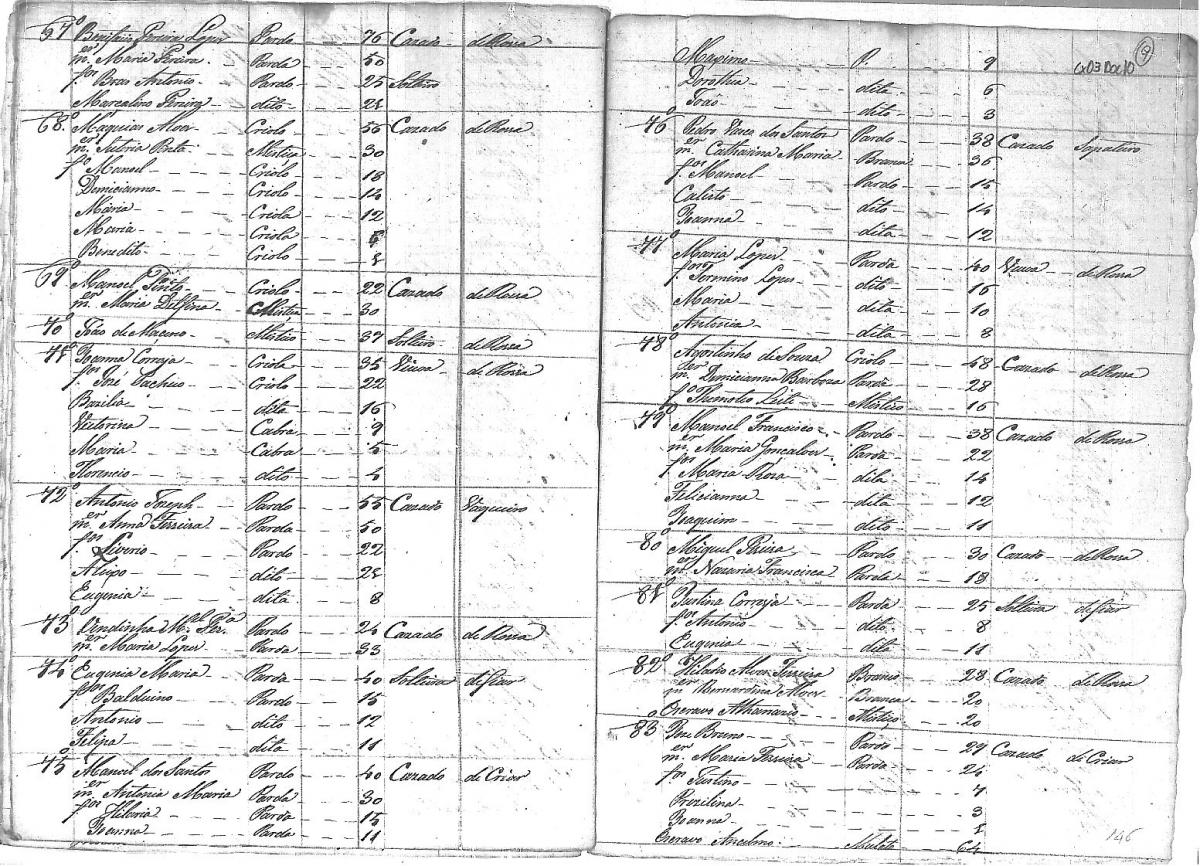 67º Bonifacio Pereira Lopes Pardo 76 Cazado de Rossa
m.er Maria Pereira Parda 50
f.os Bras Antonio Pardo 25 Solteiro
Marcelino Pereira dito 21
68º Maquias Alvez Criolo 55 Cazado de Rossa
m.er Mistiça 30
f.º Manoel Criolo 18
Domicianno Criolo 14
Maria Criola 12
Maria Criola
Benedito Criolo
69º Manoel Criolo 22 Cazado de Rossa
m.er Maria Delfina Mistiça 30
70º João de Mistiço 37 Solteiro de Rossa
71º Joanna Correja Criola 35 Viuva de Rossa
f.os José Criolo 22
Bazilia dita 16
Victorina Cabra 9
Maria Cabra 5
Florencio dito 4
72º Antonio Joseph Pardo 55 Cazado Vaqueiro
m.er Anna Ferreira Parda 50
f.os Liberio Pardo 22
Alupo dito 21
Eugenia dita 8
73º M.el Per.ª Pardo 24 Cazado de Rossa
m.er Maria Lopes Parda 33
74º Eugenia Maria Parda 40 Solteira de fiar
f.os Balduino Pardo 15
Antonio dito 12
Felipa dita 11
75º Manoel dos Santos Pardo 40 Cazado de Criar
m.er Antonia Maria Parda 30
f.os Hilaria Parda 15
Joanna Parda 11
Cx03 Doc10
Maximo P. 9
Dorothea dita 6
João dito 3
76º Pedro Vares dos Santos Pardo 38 Cazado Sapateiro
m.er Catharina Maria Branca 36
f.os Manoel Pardo 15
Calisto dito 14
Joanna dita 12
77º Maria Lopes Parda 40 Viuva de Rossa
f.os Fermino Lopes dito 16
Maria dita 10
Antonia dita 8
78º Agostinho de Souza Criolo 48 Cazado de Rossa
m.er Domicianna Barboza Parda 28
f.º Thimotio Leite Mistiço 16
79º Manoel Francisco Pardo 38 Cazado de Rossa
m.er Maria Gonçalves Parda 22
f.os Maria Roza dita 14
Felicianna dita 12
Joaquim dito 11
80º Miguel Pardo 30 Cazado de Rossa
m.er Nazaria Francisca Parda 18
81º Justina Correja Parda 25 Solteira de fiar
f.os Antonio dito 8
Eugenia dita 11
82º Hilario Alvez Ferreira Branco 28 Cazado de Rossa
m.er Bernardina Alvez Branca 20
Escravo Athanazio Mistiço 20
83º Joze Bruno Pardo 29 Cazado de Criar
m.er Maria Ferreira Parda 24
f.os Justino 4
3
Joanna 1
Escravo Anselmo Mulato 64
146